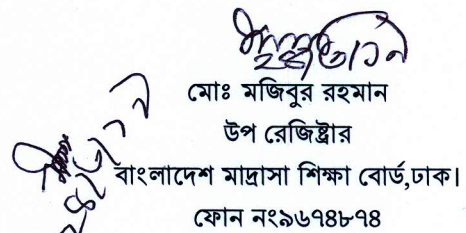 মোঃ মজিবুর রহমান
উপ রেজিষ্ট্রার
বাংলাদেশ মাদ্রাসা শিক্ষা বোর্ড,ঢাকা।
ফোন নং৯৬৭৪৮৭৪